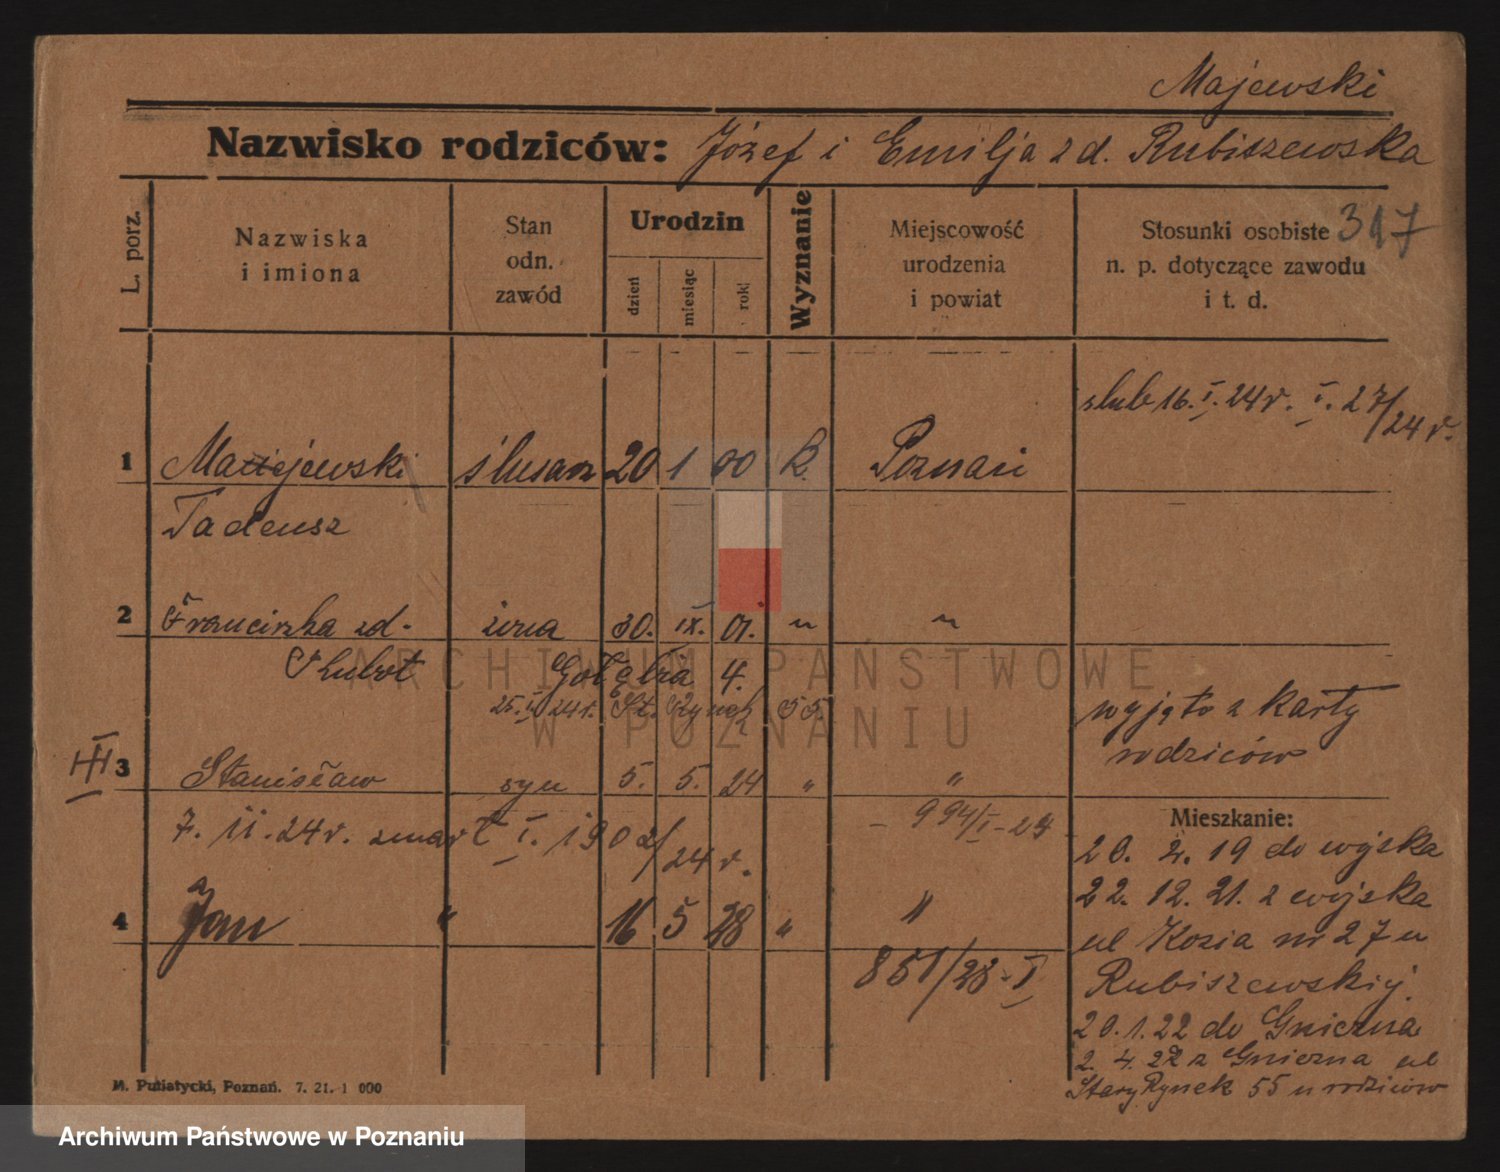 Majewski
Nazwisko rodziców: Józef i Emilja z d. Rubiszewska
317
L. porz.
Nazwiska
i imiona
Stan
odn.
zawód
Urodzin
dzień
miesiąc
rok
Wyznanie
Miejscowość
urodzenia
i powiat
Stosunki osobiste
n. p. dotyczące zawodu
i t. d.
ślub 16. I. 24 r. I. 27/24 r.
1 Maciejewski ślusarz 20 1 00 k. Poznań
Tadeusz
2 Franciszka zd. żona 30. IX. 01. " "
Skubot Gołębia 4.
25. 24 r. St. Rynek 55.
wyjęto z karty
rodziców
III
3 Stanisław syn 5. 5. 24 " "
7. 11. 24 r. zmarł I. 1902/24 r.
994/I-24
Mieszkanie:
20. 2. 19 do wojska
22. 12. 21. z wojska
4 Jan " 16 5 28 " "
851/28-I
ul Kozia nr 27 u
Rubiszewskiej.
20. 1. 22 do Gniezna
2. 4. 22 z Gniezna ul
Stary Rynek 55 u rodziców
M. Putiatycki, Poznań. 7. 21. 1 000
ARCHIWUM PAŃSTWOWE
W POZNANIU
Archiwum Państwowe w Poznaniu